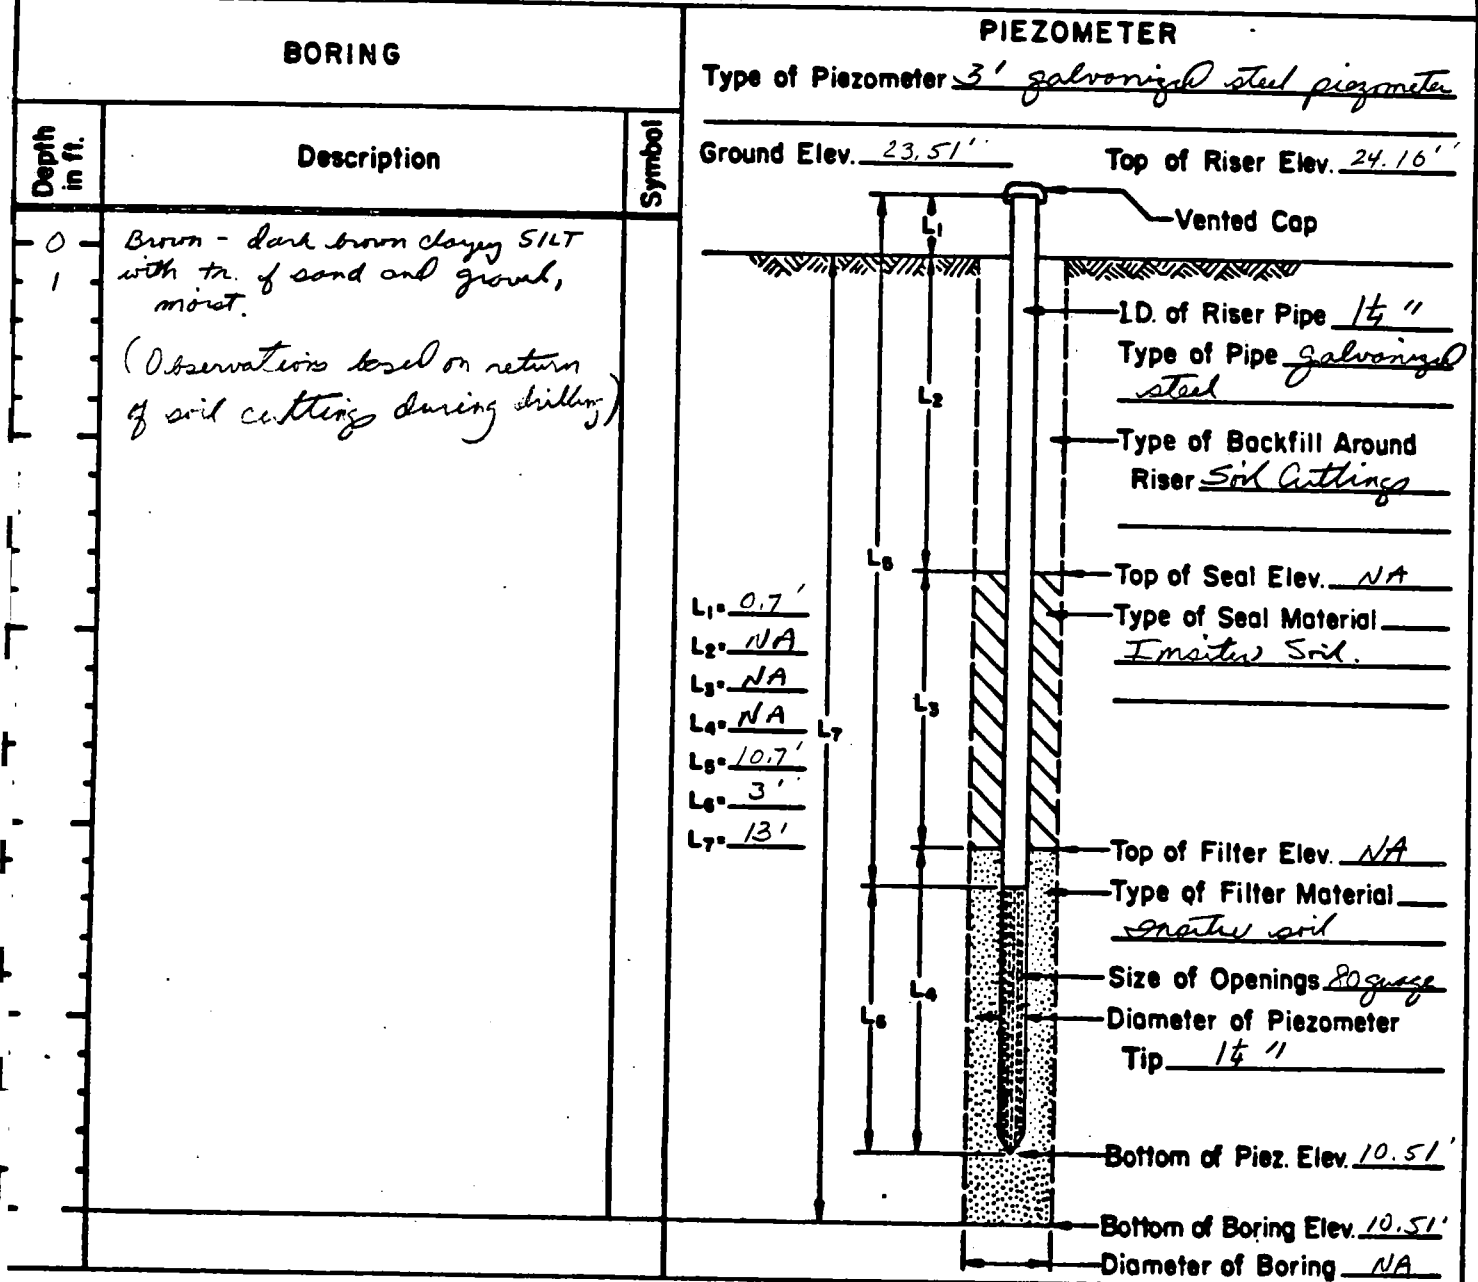 BORING
Depth in ft.
Description
Symbol
0
1
Brown - dark brown clayey SILT
with tr. of sand and gravel,
moist.
(Observations based on return
of soil cuttings during drilling)
PIEZOMETER
Type of Piezometer 3' galvanized steel piezometer
Ground Elev. 23.51' Top of Riser Elev. 24.16'
Vented Cap
I.D. of Riser Pipe 1¼"
Type of Pipe galvanized
steel
Type of Backfill Around
Riser Soil Cuttings
Top of Seal Elev. NA
Type of Seal Material
Insitu Soil.
L1= 0.7'
L2= NA
L3= NA
L4= NA
L5= 10.7'
L6= 3'
L7= 13'
L1
L2
L5
L3
L7
L4
L6
Top of Filter Elev. NA
Type of Filter Material
insitu soil
Size of Openings 80 guage
Diameter of Piezometer
Tip 1¼"
Bottom of Piez. Elev. 10.51'
Bottom of Boring Elev. 10.51'
Diameter of Boring NA